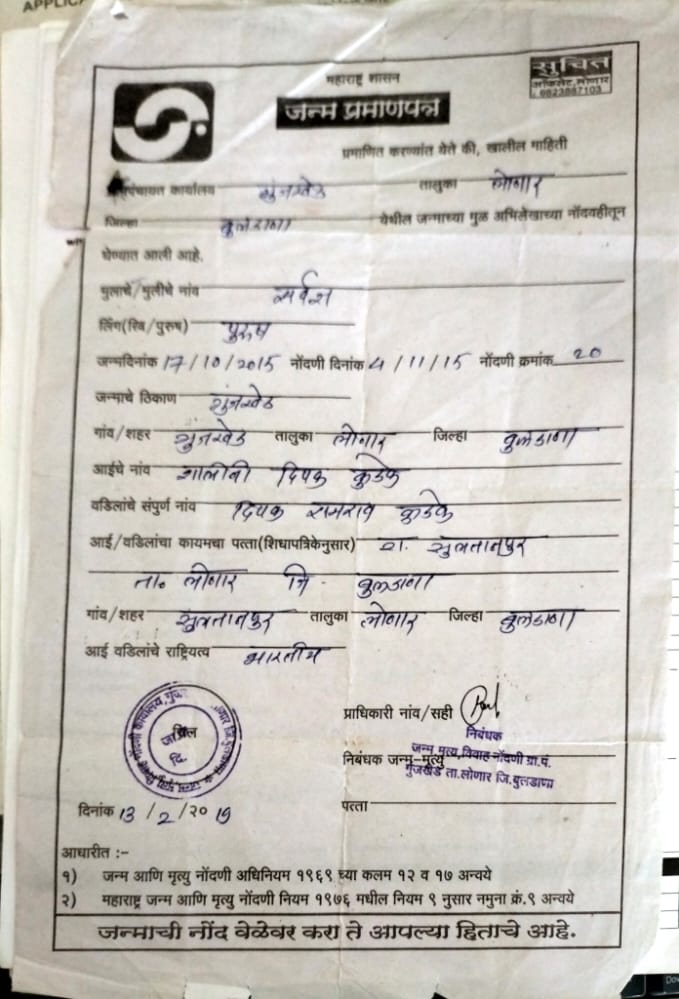 APPLICA
महाराष्ट्र शासन
सुचित
ऑफसेट, लोणार
9823887103
जन्म प्रमाणपत्र
प्रमाणित करण्यांत येते की, खालील माहिती
पंचायत कार्यालय गुंजखेड तालुका लोणार
जिल्हा बुलडाणा येथील जन्माच्या मुळ अभिलेखाच्या नोंदवहीतून
घेण्यात आली आहे.
मुलाचे/मुलीचे नांव
लिंग(स्त्रि/पुरुष) पुरुष
जन्मदिनांक 17/10/2015 नोंदणी दिनांक 4/11/15 नोंदणी क्रमांक 20
जन्माचे ठिकाण गुंजखेड
गांव/शहर गुंजखेड तालुका लोणार जिल्हा बुलडाणा
आईचे नांव दिपक कुडके
वडिलांचे संपुर्ण नांव दिपक रामराव कुडके
आई/वडिलांचा कायमचा पत्ता(शिधापत्रिकेनुसार) रा. सुलतानपुर
ता. लोणार जि. बुलडाणा
गांव/शहर सुलतानपुर तालुका लोणार जिल्हा बुलडाणा
आई वडिलांचे राष्ट्रियत्व भारतीय
प्राधिकारी नांव/सही
निबंधक
निबंधक जन्म-मृत्यु
जन्म,मृत्य,विवाह नोंदणी ग्रा.पं.
गुंजखेड ता.लोणार जि.बुलडाणा
दिनांक 13/2/2019 पत्ता
आधारीत :-
१) जन्म आणि मृत्यु नोंदणी अधिनियम १९६९ च्या कलम १२ व १७ अन्वये
२) महाराष्ट्र जन्म आणि मृत्यु नोंदणी नियम १९७६ मधील नियम ९ नुसार नमुना क्रं.९ अन्वये
जन्माची नोंद वेळेवर करा ते आपल्या हिताचे आहे.